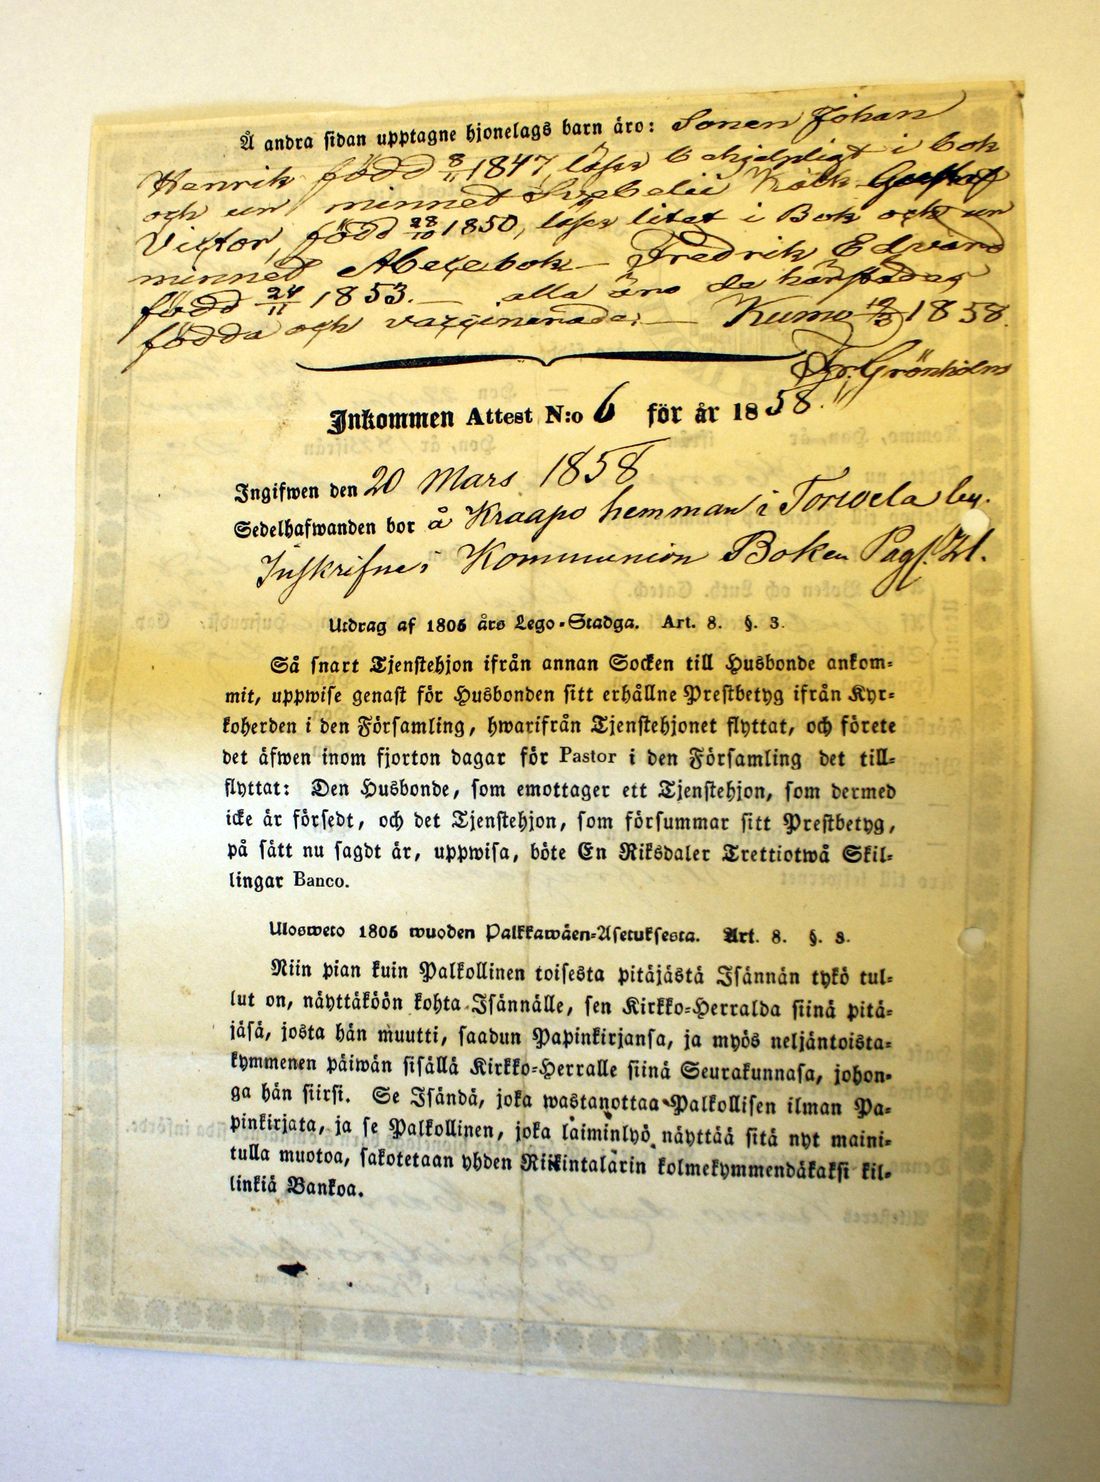 Å andra sidan upptagne hjonelags barn äro: Sonen Johan
Henrik född 8/11 1847, läser behjelpligt i bok
och ur minnet Svebelii Kätk. Gustaf
Victor, född 28/10 1850, läser litet i Bok och ur
minnet Abecebok — Fredrik Edvard
född 24/11 1853. — alla äro de härstädes
födda och vaccinerade. — Kumo 19/3 1858.
Fr. Grönholm
Inkommen Attest N:o 6 för år 1858.
Ingifwen den 20 Mars 1858
Sedelhafwanden bor å Kraapo hemman i Torwela by.
Inskrifne i Kommunion Boken Pag. 21.
Utdrag af 1805 års Lego-Stadga. Art. 8. §. 3.
Så snart Tjenstehjon ifrån annan Socken till Husbonde ankom-
mit, uppwise genast för Husbonden sitt erhållne Prestbetyg ifrån Kyr-
koherden i den Församling, hwarifrån Tjenstehjonet flyttat, och förete
det äfwen inom fjorton dagar för Pastor i den Församling det till-
flyttat: Den Husbonde, som emottager ett Tjenstehjon, som dermed
icke är försedt, och det Tjenstehjon, som försummar sitt Prestbetyg,
på sätt nu sagdt är, uppwisa, böte En Riksdaler Trettiotwå Skil-
lingar Banco.
Ulosweto 1805 wuoden Palkkawäen-Asetuksesta. Art. 8. §. 3.
Niin pian kuin Palkollinen toisesta pitäjästä Isännän tykö tul-
lut on, näyttäköön kohta Isännälle, sen Kirkko-Herralda siinä pitä-
jäsä, josta hän muutti, saadun Papinkirjansa, ja myös neljäntoista-
kymmenen päiwän sisällä Kirkko-Herralle siinä Seurakunnasa, johon-
ga hän siirsi. Se Isändä, joka wastanottaa Palkollisen ilman Pa-
pinkirjata, ja se Palkollinen, joka laiminlyö näyttää sitä nyt maini-
tulla muotoa, sakotetaan yhden Riikintalarin kolmekymmendäkaksi kil-
linkiä Bankoa.